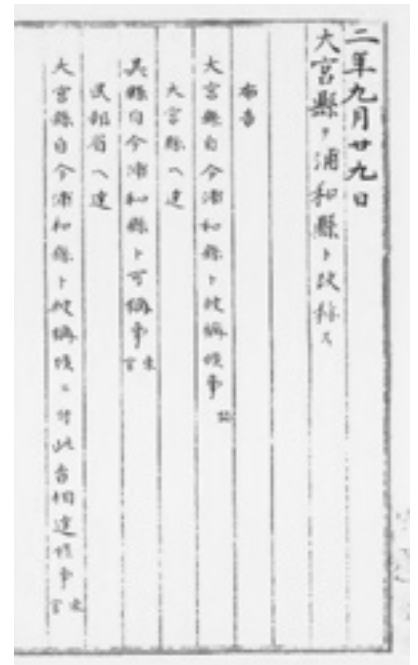 二年九月廿九日
大宮縣ヲ浦和縣ト改称ス
布告
大宮縣自今浦和縣ト被稱候事
大宮縣ヘ達
其縣自今浦和縣ト可稱事
民部省ヘ達
大宮縣自今浦和縣ト被稱候ニ付此旨相達候事